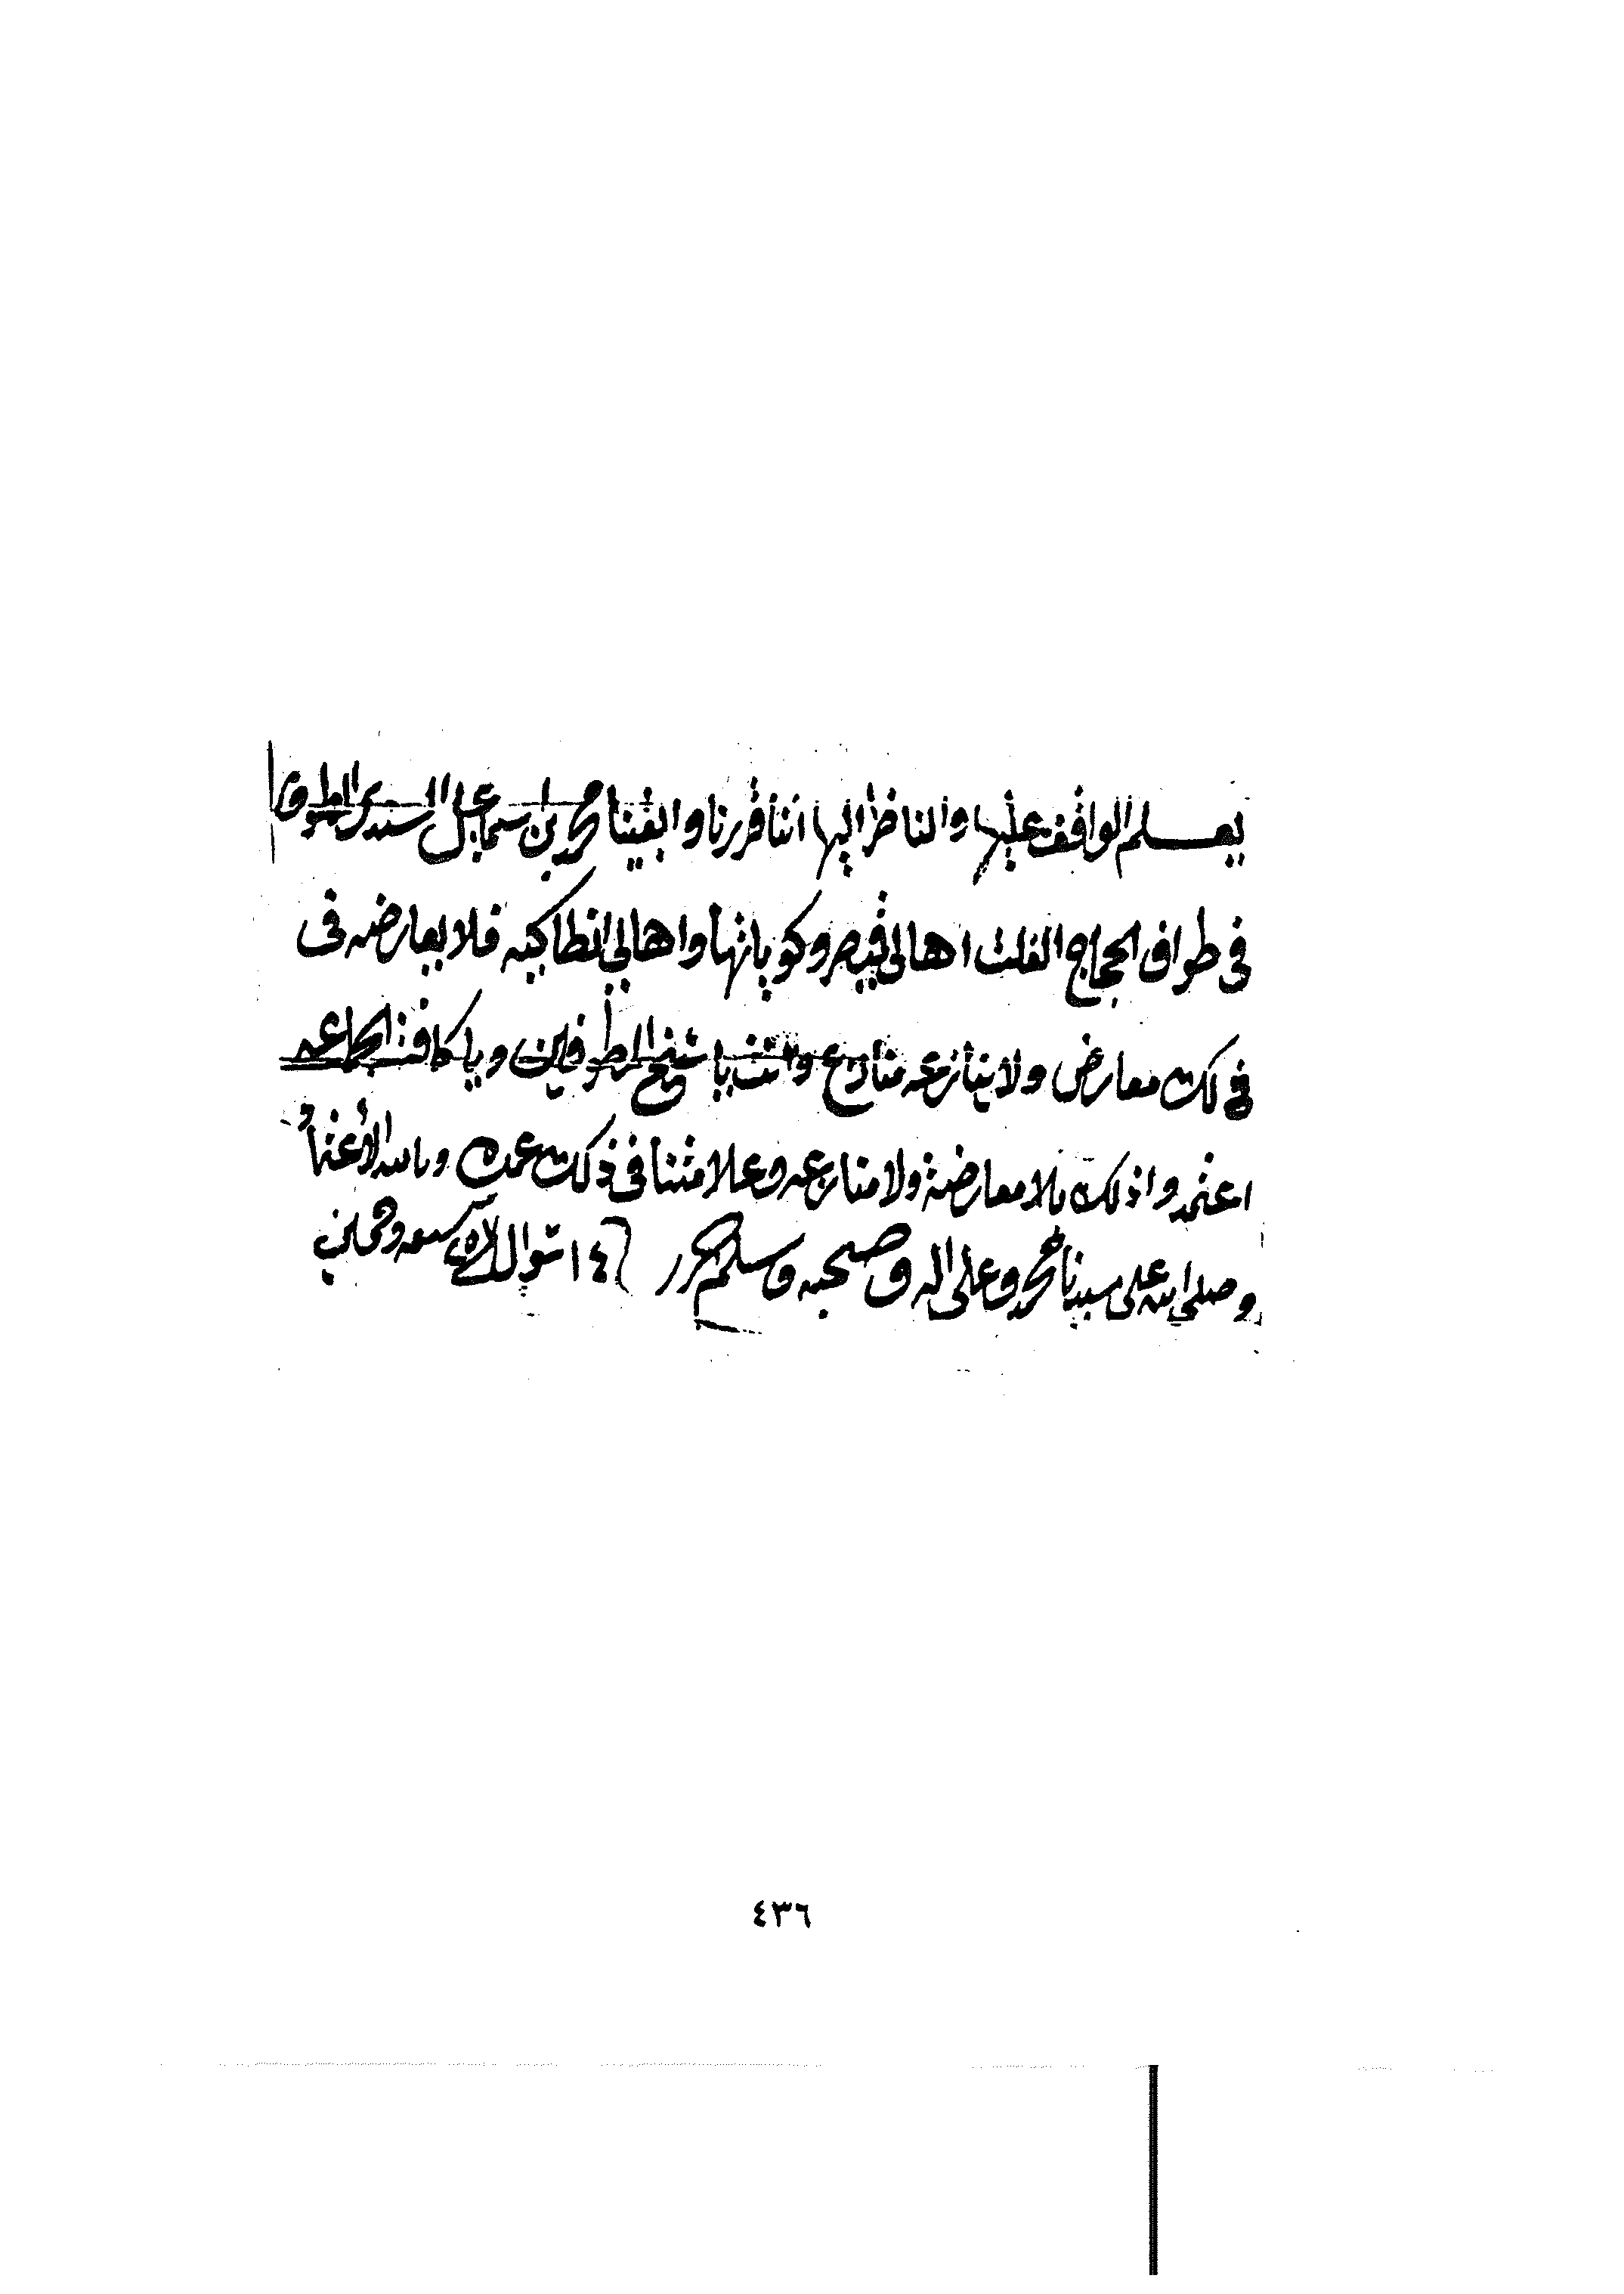 يعلم الواقف عليها والناظر اليها اننا قررنا وابقينا محمد بن سماعيل السندي المطوف
في طواف الحجاج اهالي قيصر وكوبانها واهالي انطاكيه فلا يعارضه في
ذلك معارض ولا ينازعه منازع وانت يا شيخ المطوفين ويا كافة الجماعه
اعتمدوا ذلك بلا معارضة ولا منازعه وعلامتنا في ذلك عمده وبالله الاعتناء
وصلى الله على سيدنا محمد وعلى اله وصحبه وسلم حرر ١٤ شوال سنه
٤٣٦